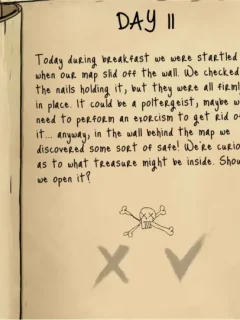 DAY 11
Today during breakfast we were startled
when our map slid off the wall. We checked
the nails holding it, but they were all firml
in place. It could be a poltergeist, maybe w
need to perform an exorcism to get rid o
it... anyway, in the wall behind the map we
discovered some sort of safe! We're curio
as to what treasure might be inside. Shou
we open it?